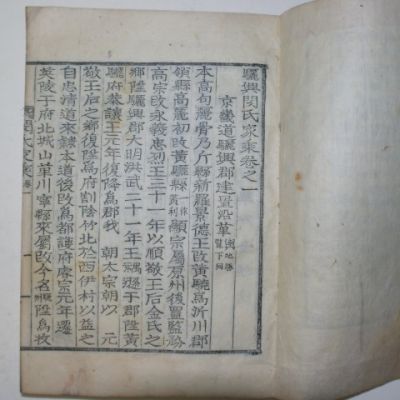 驪興閔氏家乘卷之一
京畿道驪興郡建置沿革
本高句麗骨乃斤縣新羅景德王改黃驍爲沂川郡
領縣高麗初改黃驪縣一作黃利顯宗屬原州後置監務
高宗改永義忠烈王三十一年以順敬王后金氏之
鄕陞驪興郡大明洪武二十一年王禑遜于郡陞黃
驪府恭讓王元年復降爲郡我 朝太宗朝以 元
敬王后之鄕復陞爲府割陰竹北於西伊村以益之
自忠淸道來隷本道後改爲都護府睿宗元年遷
英陵于府北城山革川寧縣來屬改今名陞爲牧